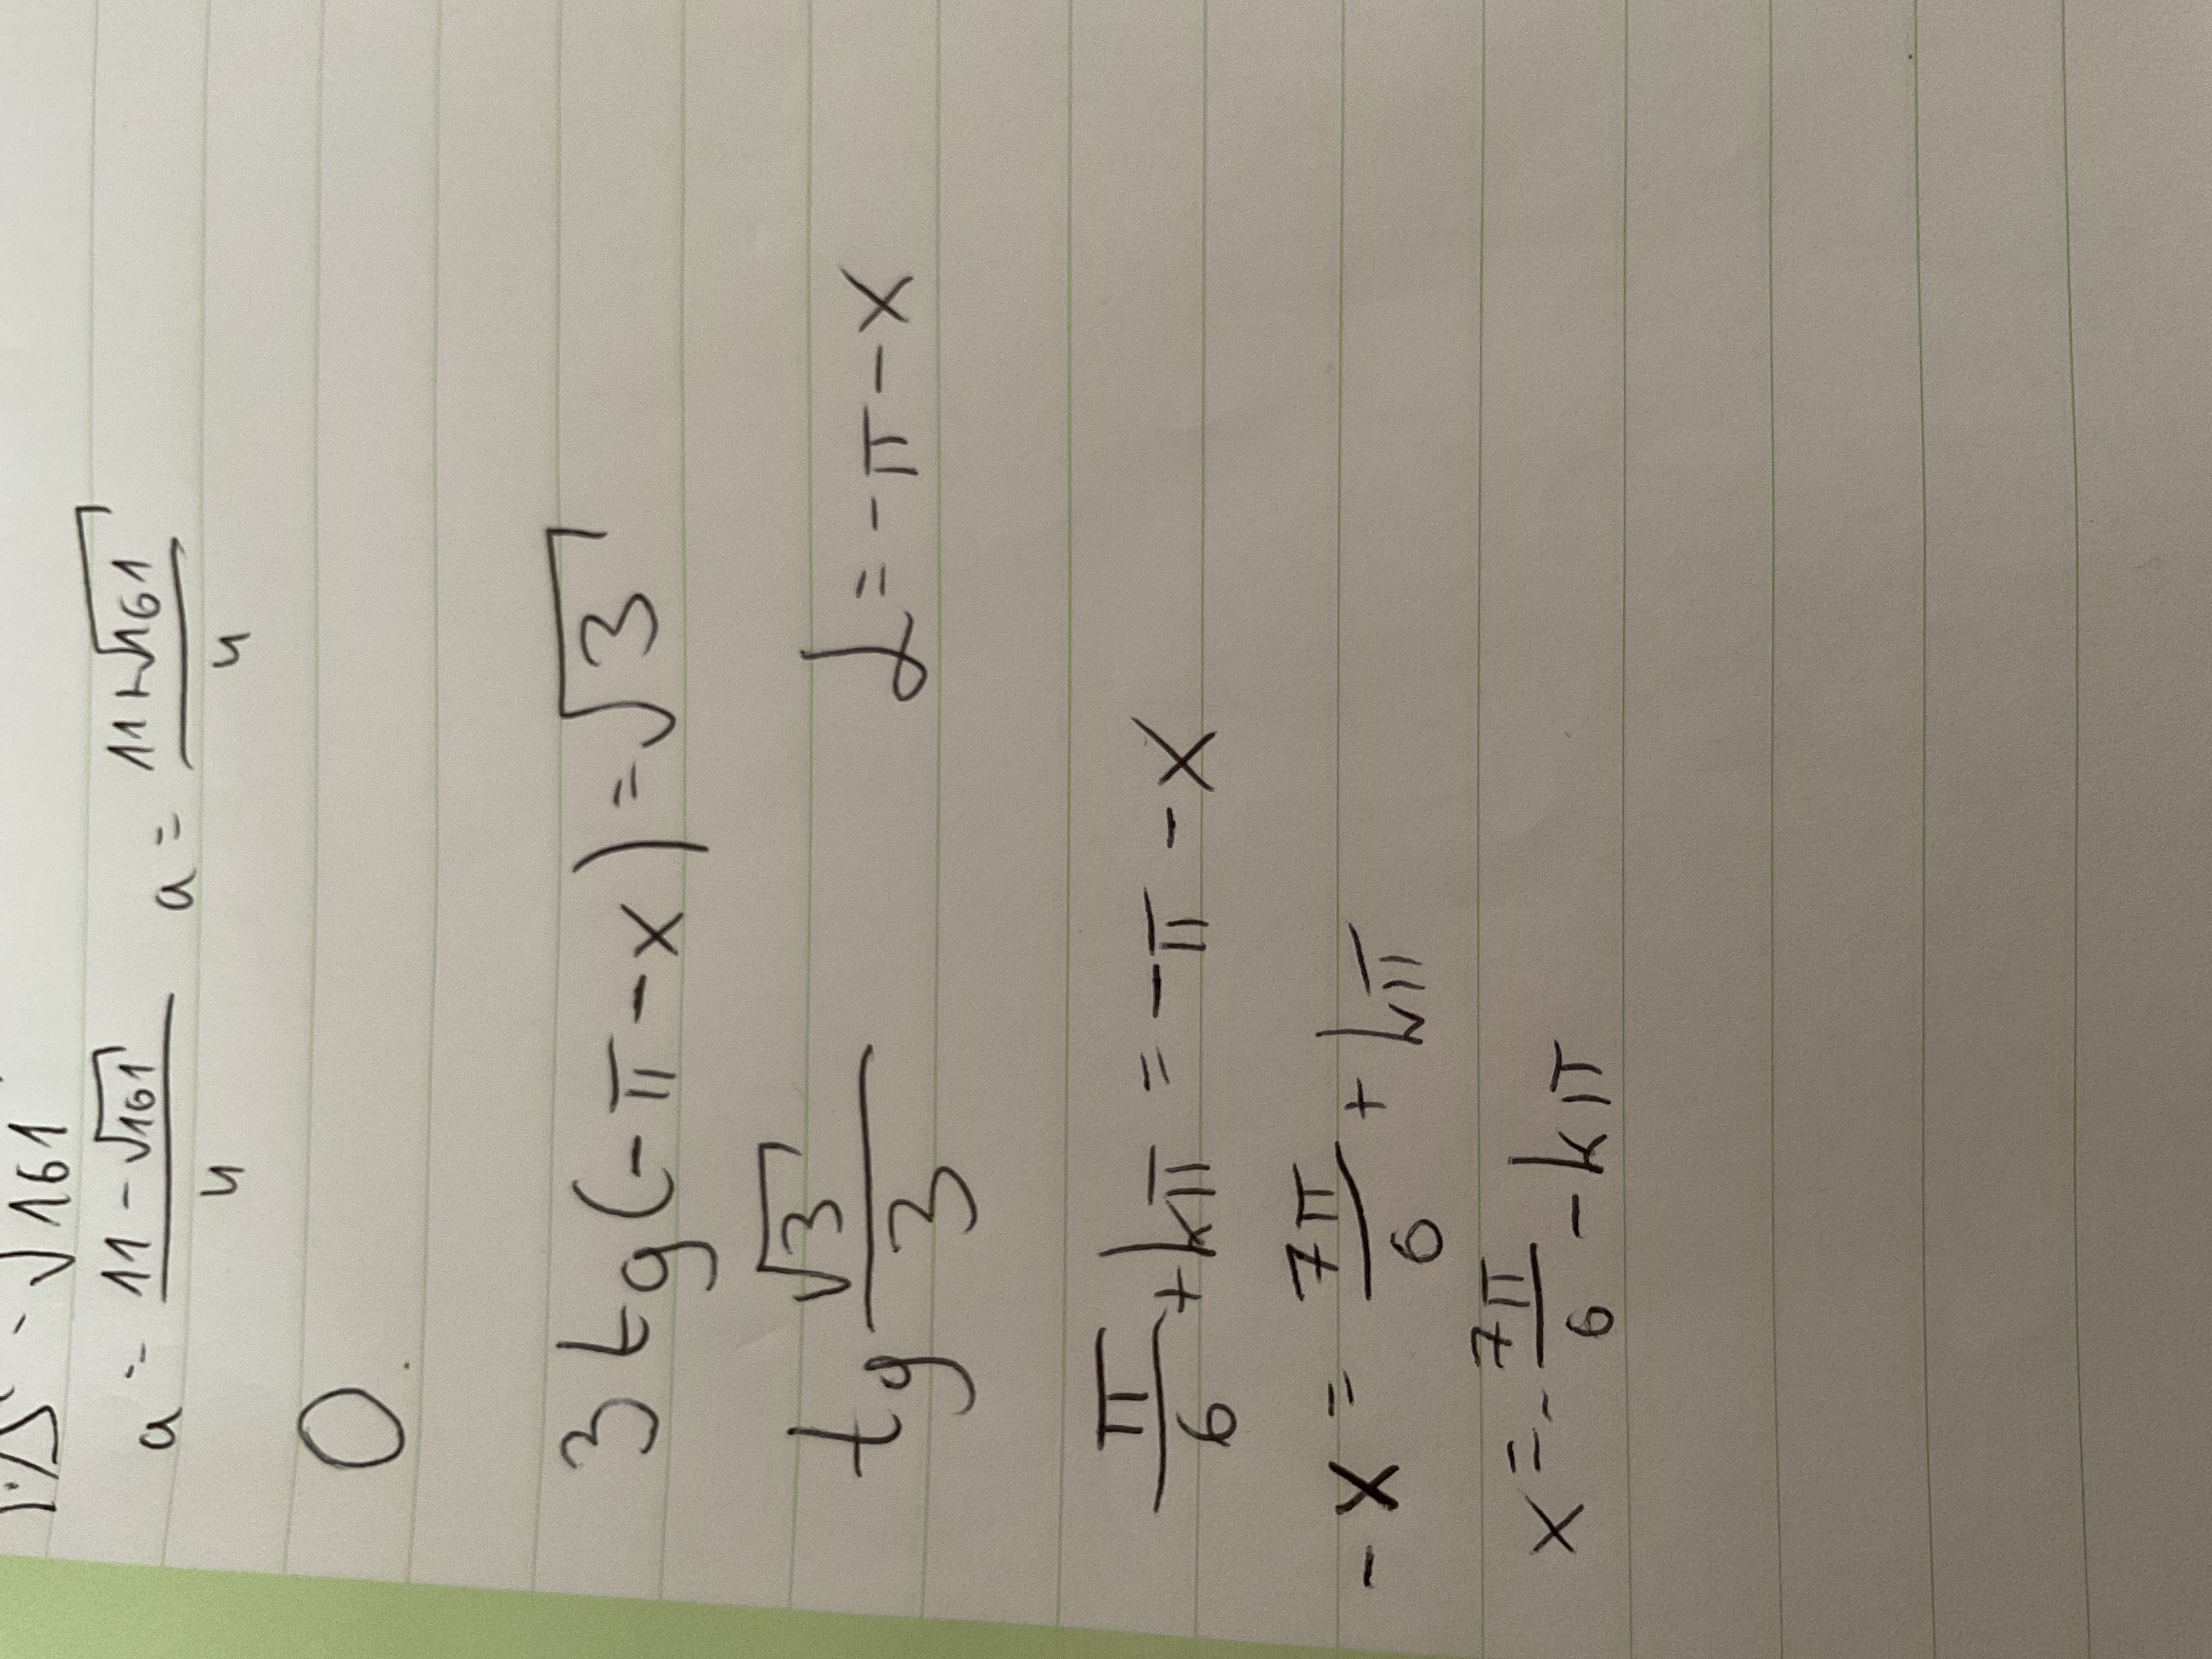 √161
a = 11 - √161 / 4   a = 11+√161 / 4
0
3 tg(-π - x) = √3
tg √3/3   α = -π - x
π/6 + kπ = -π - x
-x = 7π/6 + kπ
x = -7π/6 - kπ